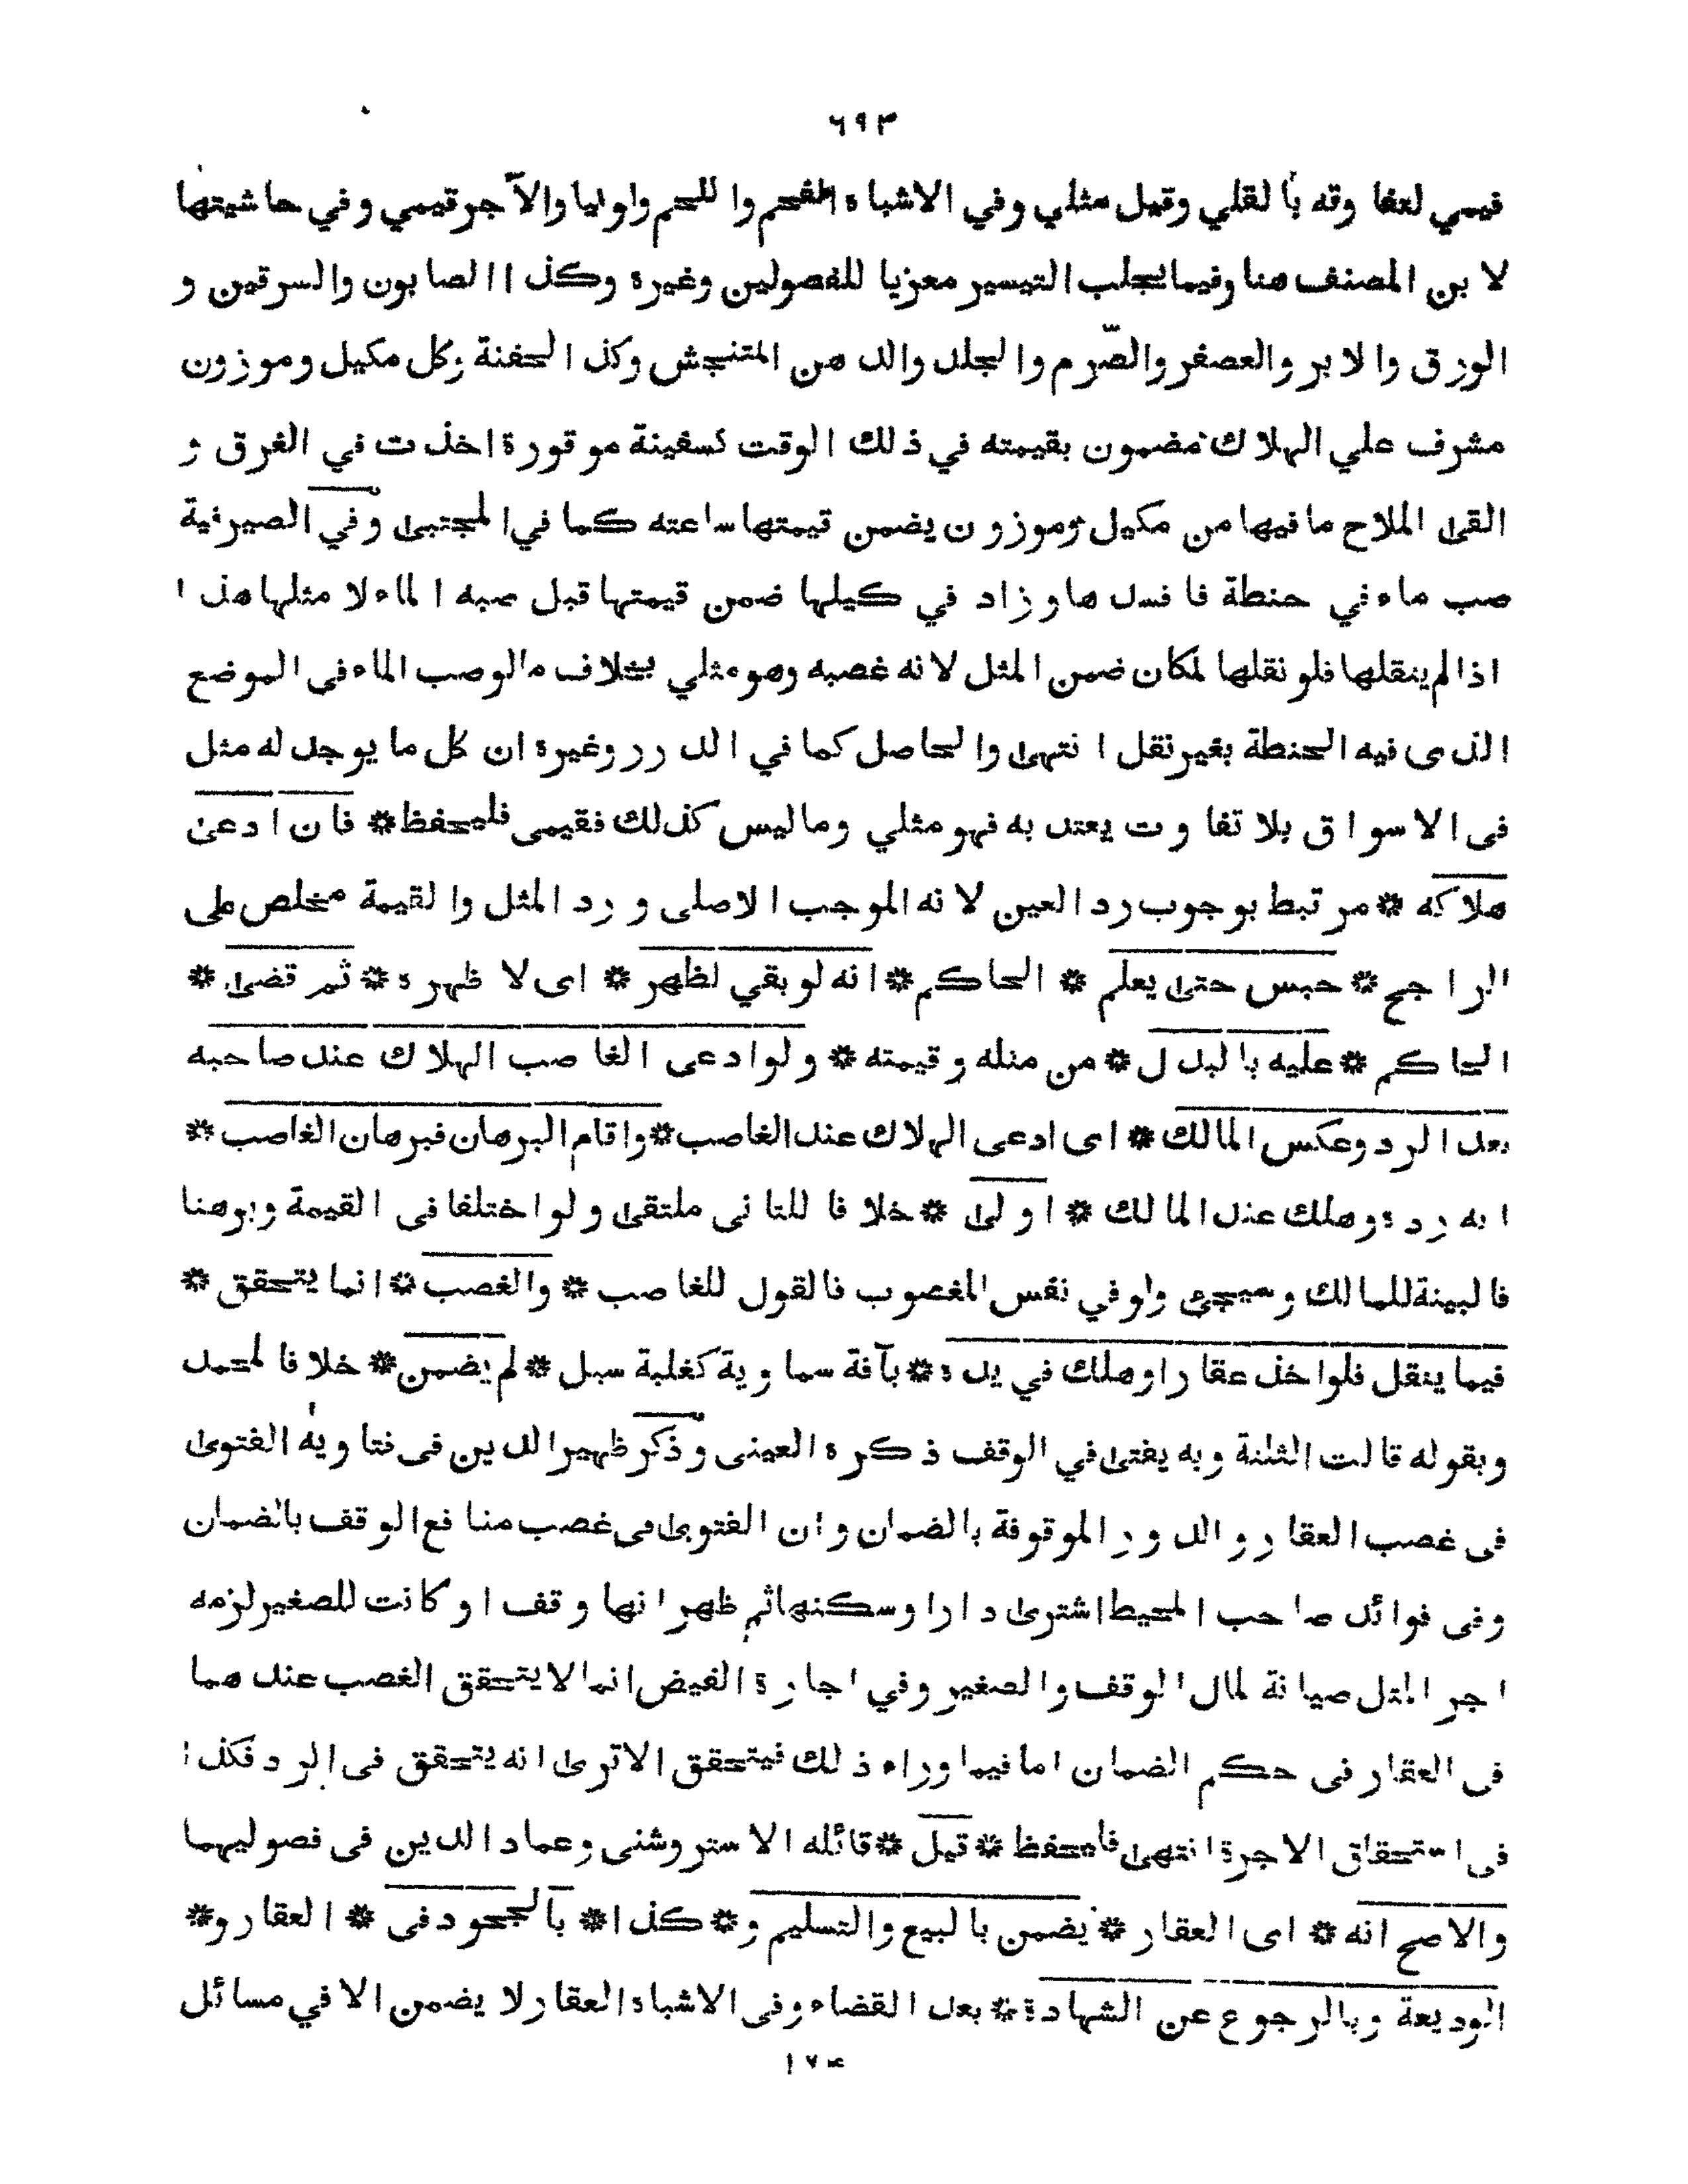 ٦٩٣
قيمي لتفاوته بالقلي وقيل مثلي وفي الاشباه الفحم واللحم ولو نيا والآجر قيمي وفي حاشيتها
لابن المصنف هنا وفيما يجلب التيسير معزيا للفصولين وغيره وكذا الصابون والسرقين و
الورق والابر والعصفر والصّرم والجلد والدهن المتنجس وكذا الحفنة وكل مكيل وموزون
مشرف علي الهلاك مضمون بقيمته في ذلك الوقت كسفينة موقورة اخذت في الغرق و
القى الملاح ما فيها من مكيل وموزون يضمن قيمتها ساعته كما في المجتبى وفي الصيرفية
صب ماء في حنطة فافسدها وزاد في كيلها ضمن قيمتها قبل صبه الماء لا مثلها هذا
اذا لم ينقلها فلو نقلها لمكان ضمن المثل لانه غصبه وهو مثلي بخلاف مالو صب الماء فى الموضع
الذى فيه الحنطة بغير نقل انتهى والحاصل كما في الدرر وغيره ان كل ما يوجد له مثل
فى الاسواق بلا تفاوت يعتد به فهو مثلي وماليس كذلك فقيمى فليحفظ * فان ادعى
هلاكه * مرتبط بوجوب رد العين لانه الموجب الاصلى و رد المثل والقيمة مخلص على
الراجح * حبس حتى يعلم * الحاكم * انه لو بقي لظهر * اى لاظهره * ثم قضى *
الحاكم * عليه بالبدل * من مثله وقيمته * ولو ادعى الغاصب الهلاك عند صاحبه
بعد الرد وعكس المالك * اى ادعى الهلاك عند الغاصب * واقام البرهان فبرهان الغاصب *
انه رده وهلك عند المالك * اولى * خلافا للثانى ملتقى ولو اختلفا فى القيمة وبرهنا
فالبينة للمالك وسيجئ ولو في نفس المغصوب فالقول للغاصب * والغصب * انما يتحقق *
فيما ينقل فلو اخذ عقارا وهلك في يده * بآفة سماوية كغلبة سيل * لم يضمن * خلافا لمحمد
وبقوله قالت الثلثة وبه يفتى في الوقف ذكره العينى وذكر ظهير الدين فى فتاويه الفتوى
فى غصب العقار والدور الموقوفة بالضمان وان الفتوى فى غصب منافع الوقف بالضمان
وفى فوائد صاحب المحيط اشترى دارا وسكنها ثم ظهر انها وقف او كانت للصغير لزمه
اجر المثل صيانة لمال الوقف والصغير وفي اجارة الفيض انما لا يتحقق الغصب عندهما
فى العقار فى حكم الضمان اما فيما وراء ذلك فيتحقق الا ترى انه يتحقق فى الرد فكذا
فى استحقاق الاجرة انتهى فليحفظ * قيل * قائله الاستروشنى وعماد الدين فى فصوليهما
والاصح انه * اى العقار * يضمن بالبيع والتسليم و * كذا * بالجحود فى * العقار و *
الوديعة وبالرجوع عن الشهادة * بعد القضاء وفى الاشباه العقار لا يضمن الا في مسائل
١٧٤